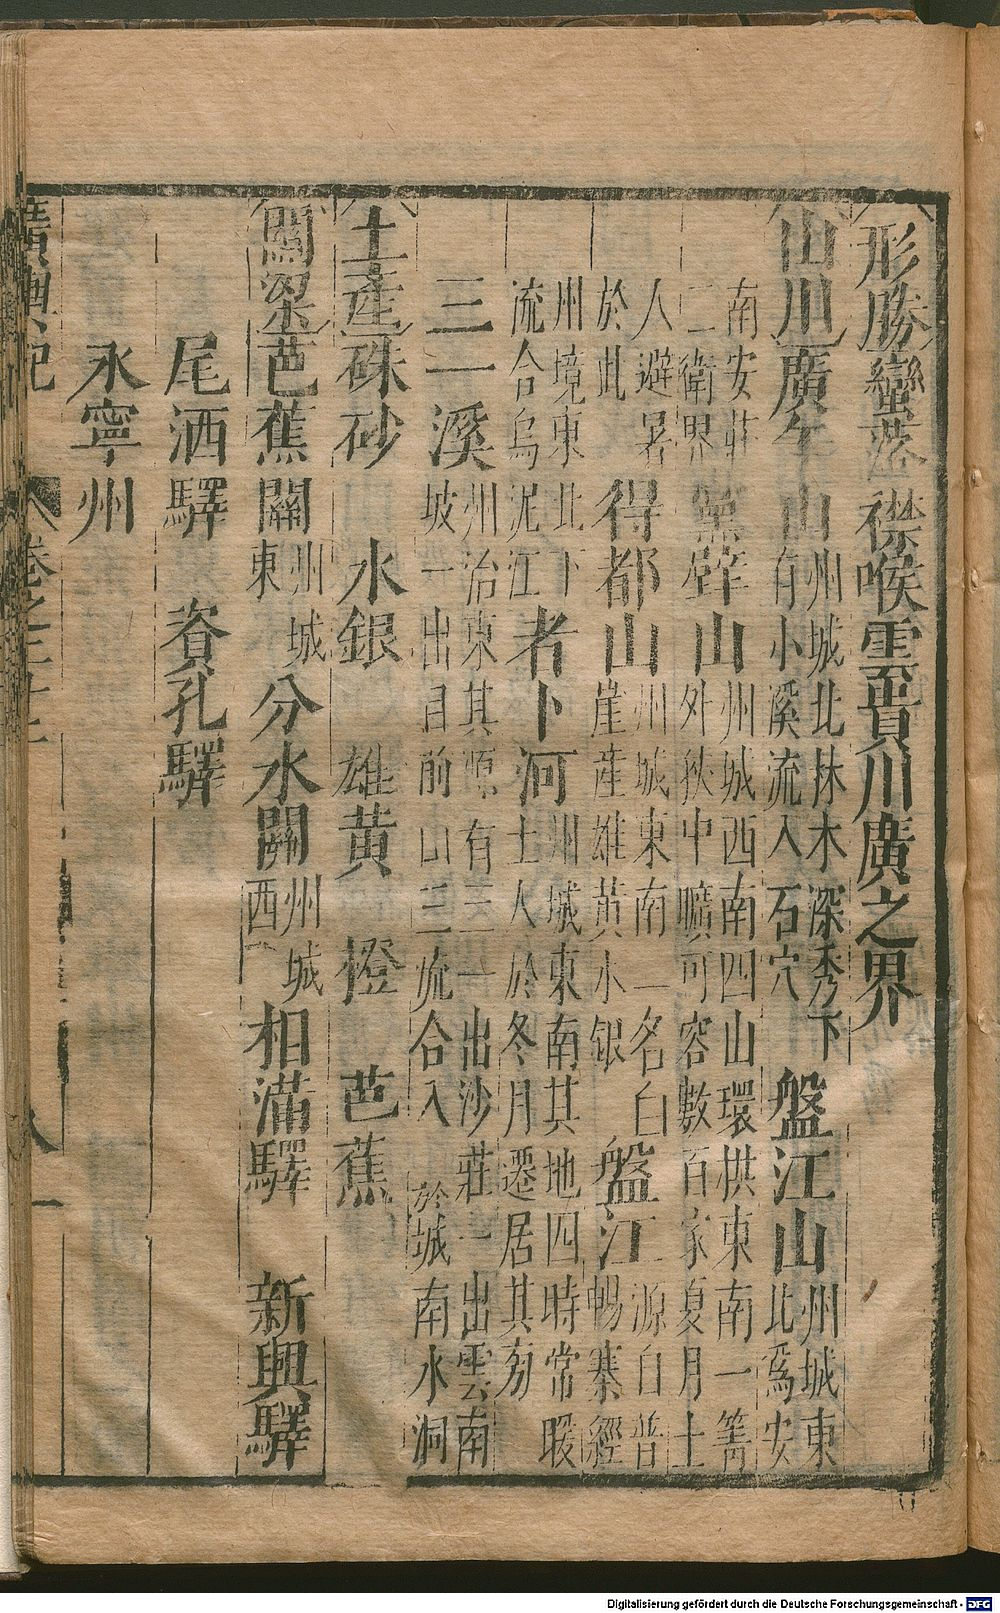 形勝 蠻落襟喉雲貴川廣之界
山川 廣午山 州城北林木深秀下有小溪流入石穴 盤江山 州城東北為安
南安莊二衛界 黨壁山 州城西南四山環拱東南一箐外狹中曠可容數百家夏月土
人避暑於此 得都山 州城東南一名白崖產雄黃水銀 盤江 源自普暢寨經
州境東北下流合烏泥江 者卜河 州城東南其地四時常暖土人於冬月遷居其旁
三一溪 州治東其源有三一出沙莊一出雲南坡一出目前山三流合入於城南水洞
土產 硃砂 水銀 雄黃 橙 芭蕉
關梁 芭蕉關 州城東 分水關 州城西 相滿驛 新興驛
尾洒驛 資孔驛
永寧州
廣輿記 卷之二十二
Digitalisierung gefördert durch die Deutsche Forschungsgemeinschaft - DFG